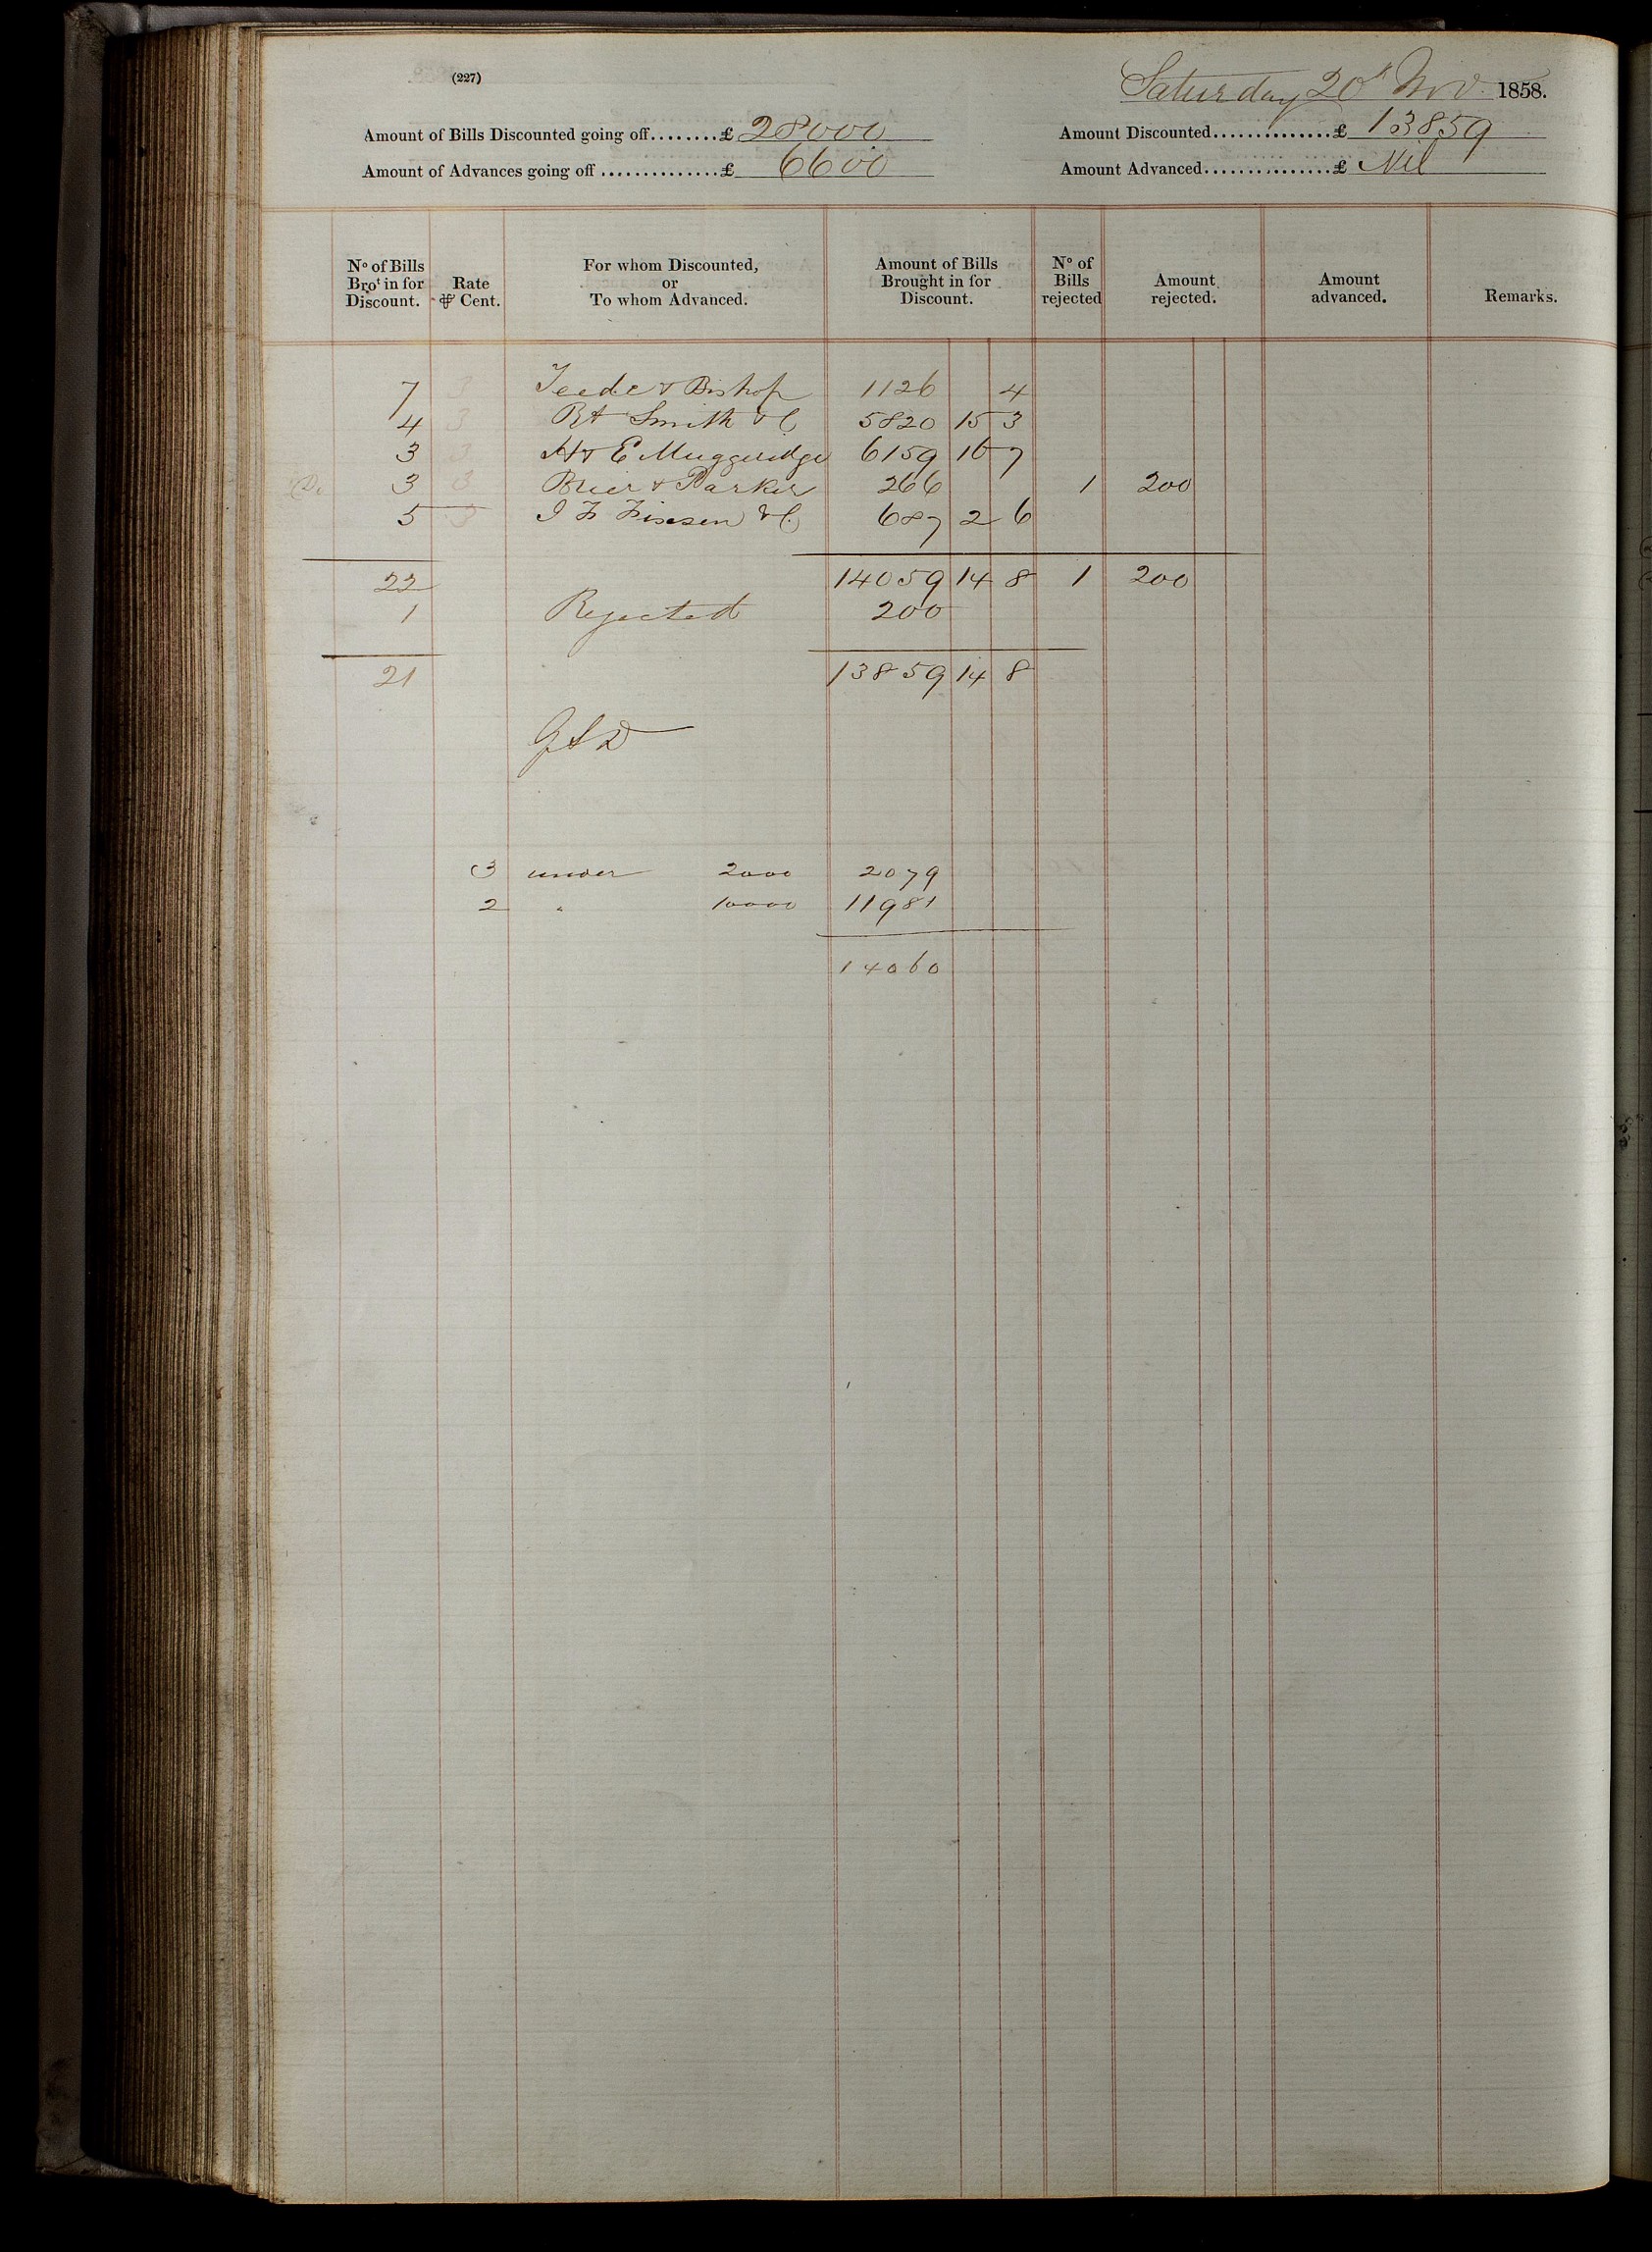 (227)
Saturday 20th Nov. 1858.
Amount of Bills Discounted going off........£ 28000
Amount Discounted..............£ 13859
Amount of Advances going off..............£ 6600
Amount Advanced...............£ Nil
No of Bills Brot in for Discount. Rate ⅌ Cent. For whom Discounted, or To whom Advanced. Amount of Bills Brought in for Discount. No of Bills rejected Amount rejected. Amount advanced. Remarks.
7 3 Teede & Bishop 1126 4
4 3 Rt Smith & C 5820 15 3
3 3 H & E Muggeridge 6159 16 7
3 3 Brier & Parker 266 1 200
5 3 I F & C 687 2 6
22 14059 14 8 1 200
1 Rejected 200
21 13859 14 8
3 under 2000 2079
2 " 10000 11981
14060